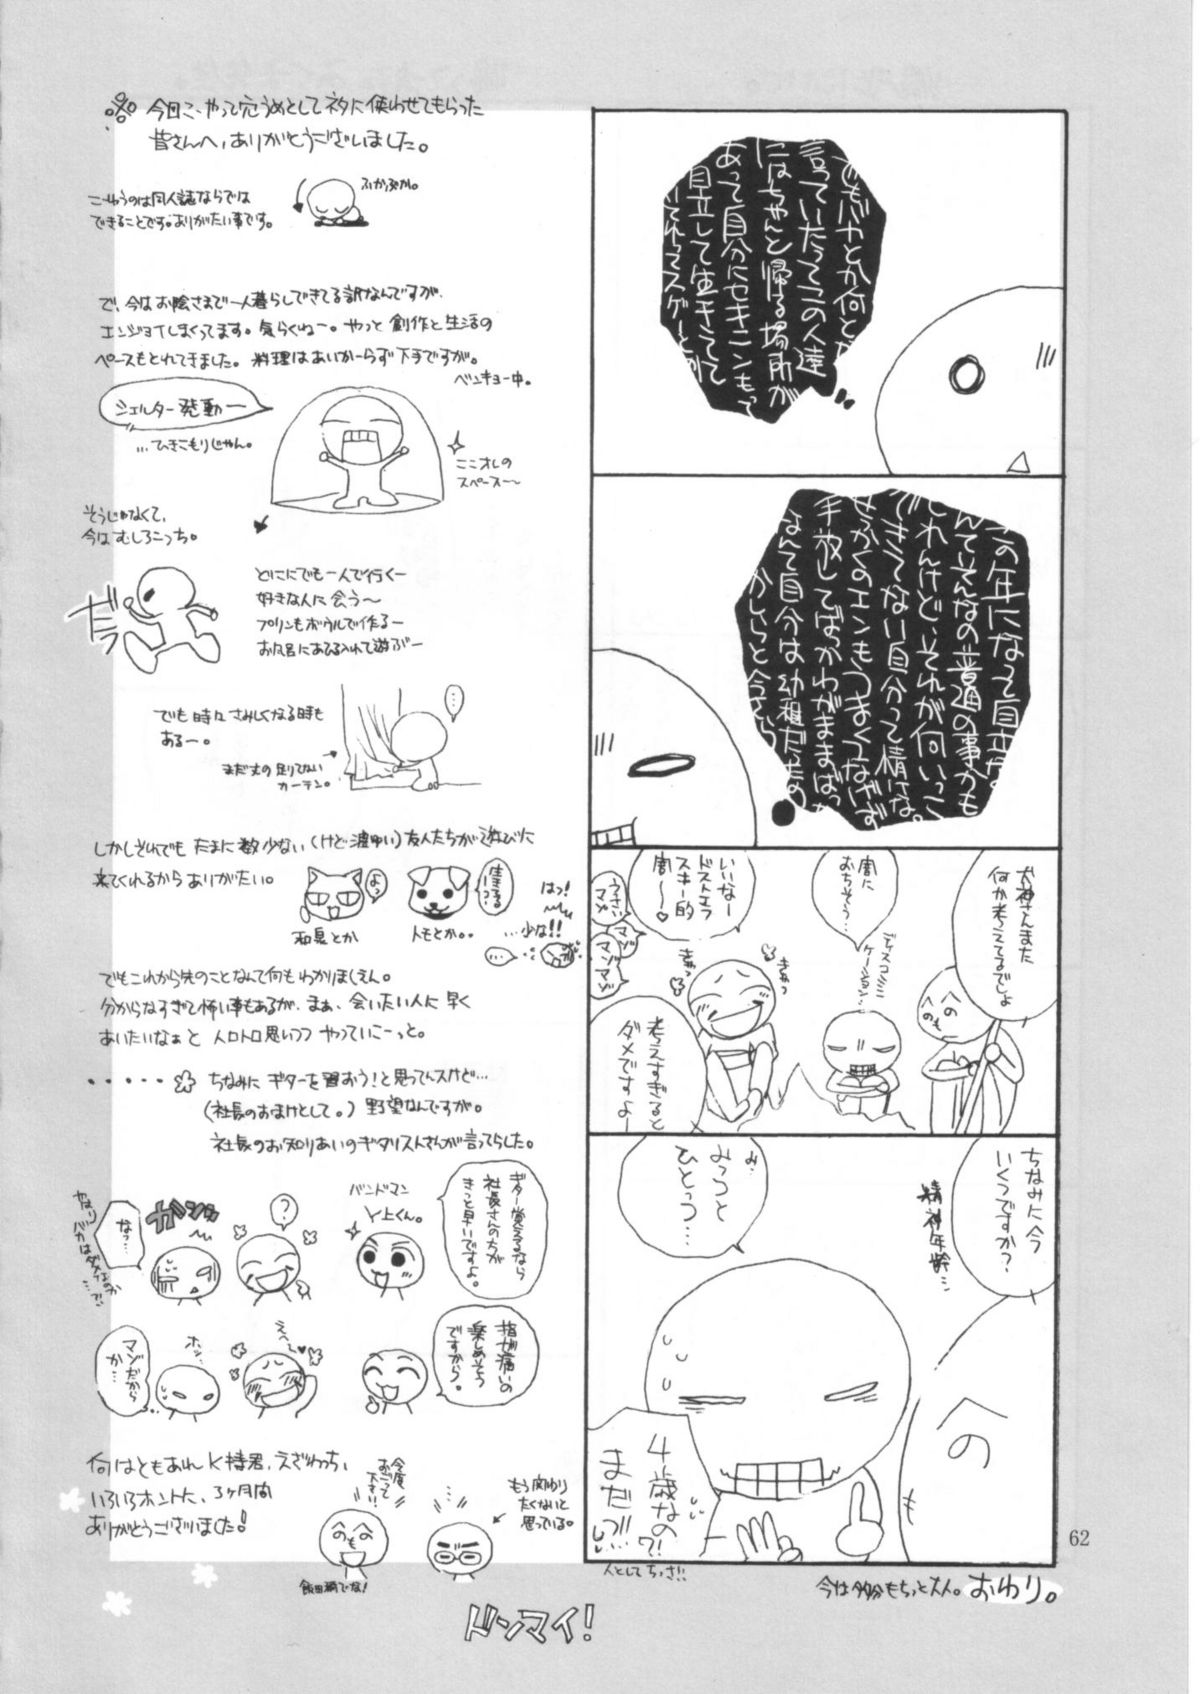 でもバヤとか何とか
言っていたってこの人達
にはちゃんと帰る場所が
あって自分にセキニンもって
自立して生キてて
それってスゲーとか
この年になって自立
んていそんなの普通の事かも
しれんけど、それが何いっこ
できてない自分って情けな。
せっかくのエンもうまくつなげず
手放してばっかわがままばっか
なんて自分は幼稚だったの
かしらと今さら
犬神さんまた
何か考えてるでしょ
闇に
おちそう…
いいなー
ドストエフ
スキー的
闇〜♡
うさい
マゾ
マゾ
マゾマゾ
きゃっ
きゃっ
考えすぎると
ダメですよー
ちなみに今
いくつですか?
精神年齢…
み…
みっつと
ひとつ…
4歳なの?!
まだ…!!
人としてちっさ!!
今は多分もちっと大人。おわり。
62
今回こーやって穴うめとしてネタに使わせてもらった
皆さんへ、ありがとうございました。
こーゆうのは同人誌ならでは
できることです。ありがたい事です。
ふかぶか。
で、今はお陰さまで一人暮らしできてる訳なんですが、
エンジョイしまくってます。気らくねー。やっと創作と生活の
ペースもとれてきました。料理はあいかーらず下手ですが。
ベンキョー中。
シェルター発動ー
…ひきこもりじゃん。
ここオレの
スペース〜
そうじゃなくて、
今はむしろこっち。
どこにでも一人で行くー
好きな人に会う〜
プリンもボウルで作るー
お風呂にあひる入れて遊ぶー
でも時々さみしくなる時も
あるー。
…
まだ丈の足りてない
カーテン。
しかしそれでもたまに数少ない(けど濃ゆい)友人たちが遊びに
来てくれるからありがたい。
よっ
和見とか
生きてる
いっ?
トモとか。。
はっ!
…少な!!
…
でもこれから先のことなんて何もわかりましぇん。
分からなすぎて怖い事もあるが、まぁ、会いたい人に早く
あいたいなぁと 人ロトロ思いつつ やっていこーっと。
ちなみに ギターを習おう!と思ってんスけど…
(社長のおまけとして。) 野望なんですが。
社長のお知りあいのギタリストさんが言ってらした。
ギター覚えるなら
社長さんの方が
きっと早いですよ。
バンドマン
Y上くん。
?
ガシッ
なっ…
やなり
バカはダメなのか
…?!
指が痛いの
楽しめそう
ですから。
えへー♥
ホッ…
マゾだから
か…
何はともあれK持君、えざわっち、
いろいろホントに、3ヶ月間
ありがとうございました!
今度
おごって
下さい!
もう関わり
たくないと
思っている。
飯田橋でな!
ドンマイ!